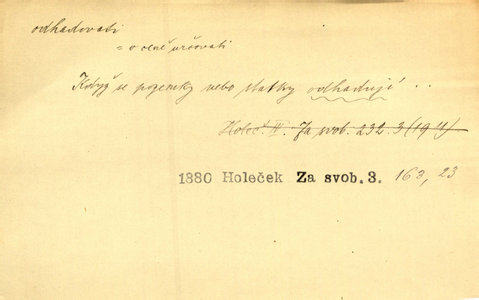 odhadovati
= o ceně určovati
Když se pozemky nebo statky odhadují ..
Holeč. IV. Za svob. 232. 3 (1911)
1880 Holeček Za svob. 3. 163, 23